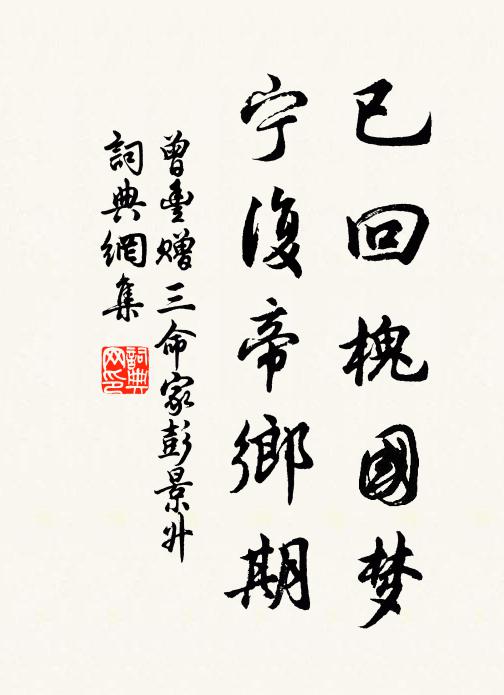 已回槐國梦
宁復帝鄉期
曾豊赠三命家彭景升
詞典網集
詞典
网印